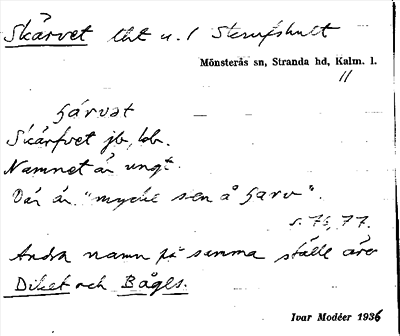 Skärvet tht u. / Stensfshult
Mönsterås sn, Stranda hd, Kalm. l.
11
ʃärvət
Skärfvet jb, lob.
Namnet är ungt.
Där är "mycke sen å ʃarv".
s. 76, 77.
Andra namn på samma ställe äro
Diket och Bågls.
Ivar Modéer 1936